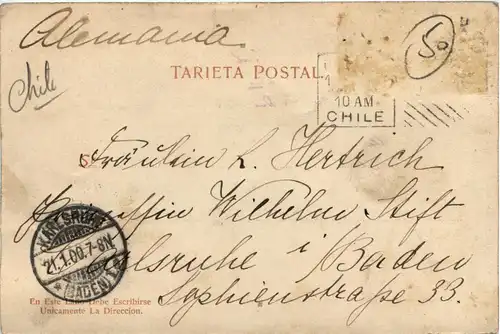 Alemania.
50
Chile
TARIETA POSTAL.
1
10 AM
CHILE
Fräulein L. Hertrich
Wilhelm Stift
KARLSRUHE
21.1.00.7-8N.
* (BADEN) 1.a.
Karlsruhe i/Baden
Sophienstraße 33.
En Este Lado Debe Escribirse
Unicamente La Direccion.